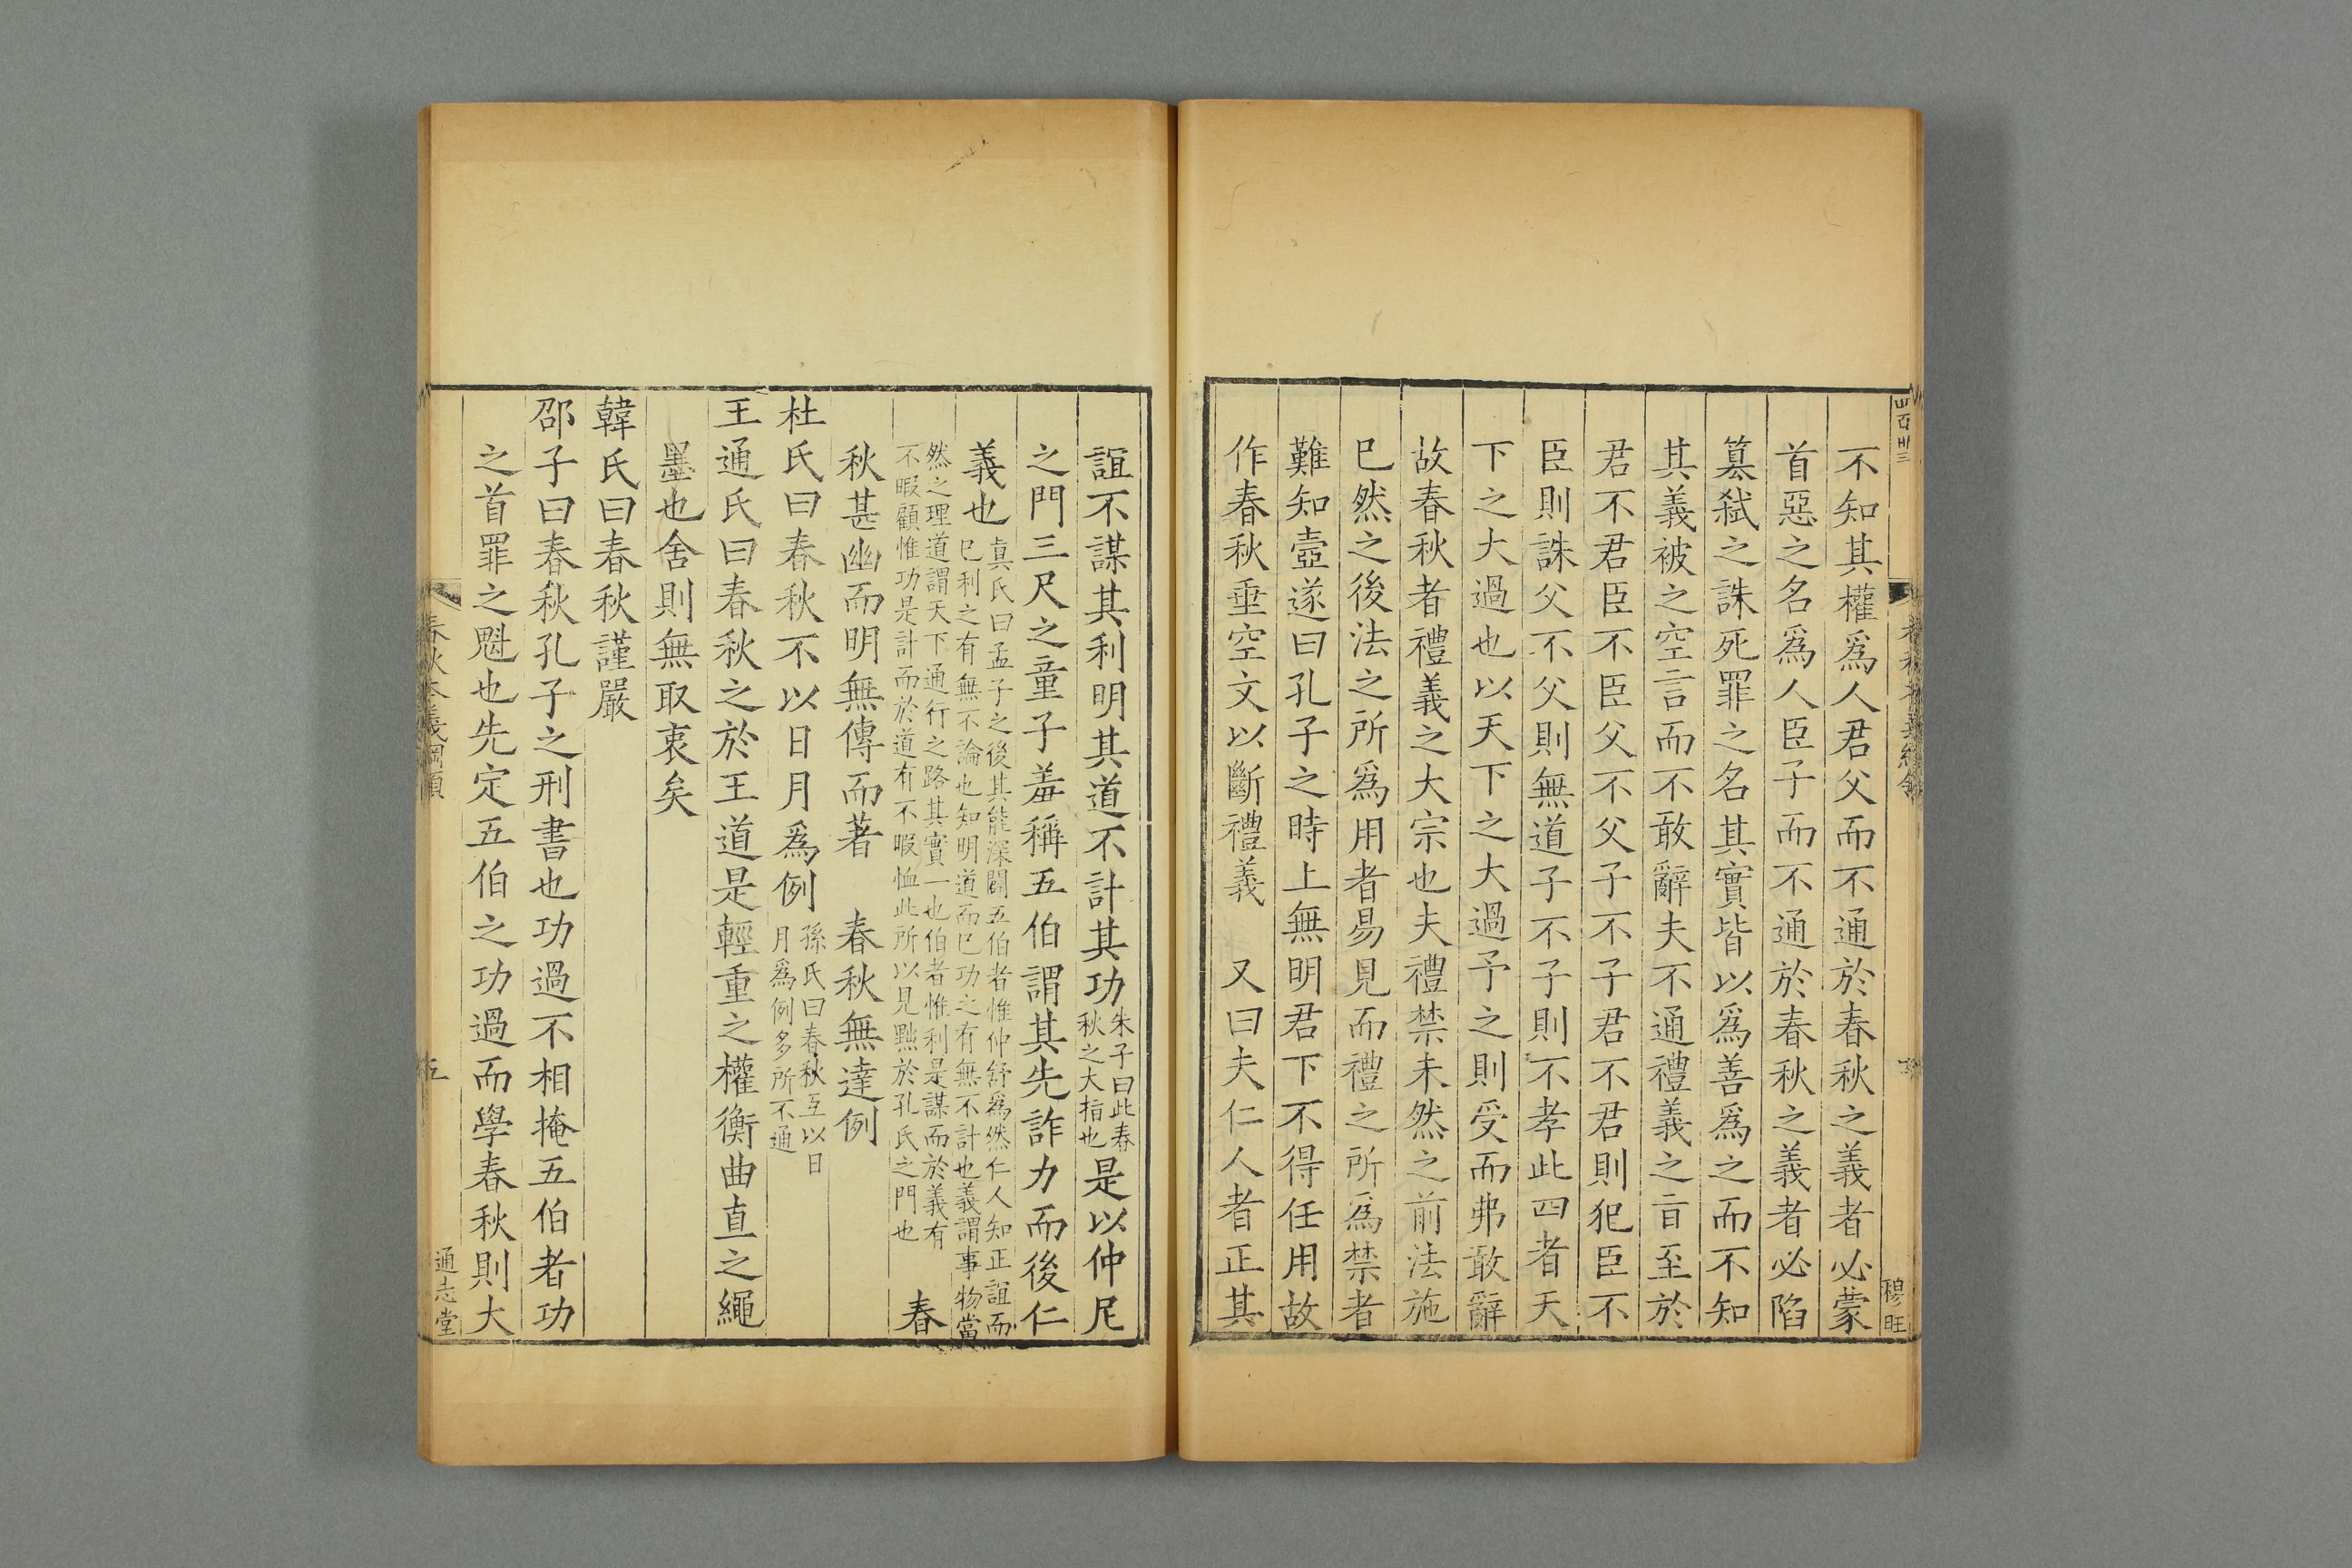 不知其權爲人君父而不通於春秋之義者必蒙
首惡之名爲人臣子而不通於春秋之義者必陷
篡弑之誅死罪之名其實皆以爲善爲之而不知
其義被之空言而不敢辭夫不通禮義之旨至於
君不君臣不臣父不父子不子君不君則犯臣不
臣則誅父不父則無道子不子則不孝此四者天
下之大過也以天下之大過予之則受而弗敢辭
故春秋者禮義之大宗也夫禮禁未然之前法施
已然之後法之所爲用者易見而禮之所爲禁者
難知壺遂曰孔子之時上無明君下不得任用故
作春秋垂空文以斷禮義 又曰夫仁人者正其
穆旺
誼不謀其利明其道不計其功朱子曰此春
秋之大指也是以仲尼
之門三尺之童子羞稱五伯謂其先詐力而後仁
義也真氏曰孟子之後其能深闢五伯者惟仲舒爲然仁人知正誼而
已利之有無不論也知明道而已功之有無不計也義謂事物當
然之理道謂天下通行之路其實一也伯者惟利是謀而於義有
不暇顧惟功是計而於道有不暇恤此所以見黜於孔氏之門也 春
秋甚幽而明無傳而著 春秋無達例
杜氏曰春秋不以日月爲例孫氏曰春秋互以日
月爲例多所不通
王通氏曰春秋之於王道是輕重之權衡曲直之繩
墨也舍則無取衷矣
韓氏曰春秋謹嚴
邵子曰春秋孔子之刑書也功過不相掩五伯者功
之首罪之魁也先定五伯之功過而學春秋則大
春秋本義綱領
五
通志堂